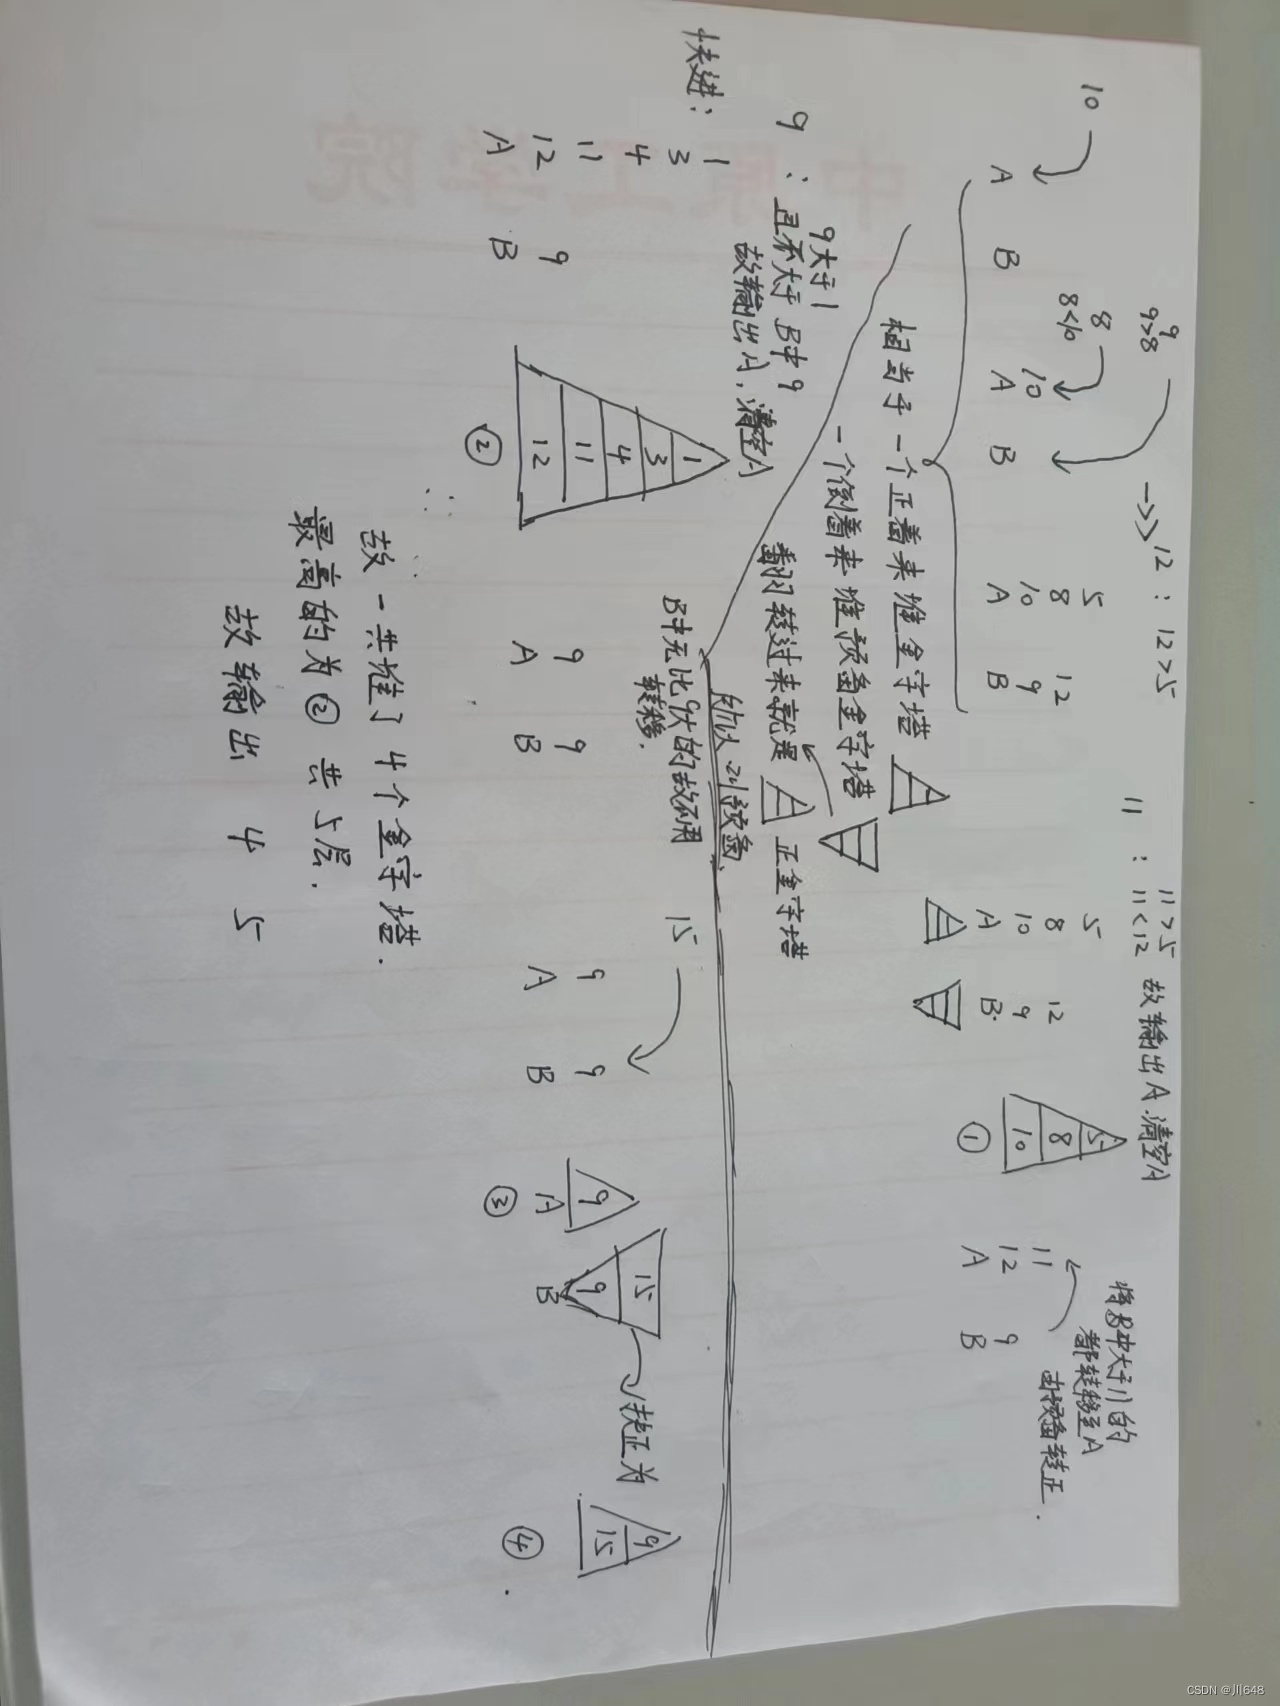 中原工学院
10
A B
8
8<10
10
A B
9
9>8
→>> 12: 12>5
5
8
10
A
12
9
B
11: 11>5
11<12 故输出A.清空A
5
8
10
A
12
9
B
5
8
10
①
将B中大于11的
都转移至A
由预备转正.
11
12
A
9
B
相当于 一个正着来堆金字塔
一个倒着来堆预备金字塔
翻转过来就是 正金字塔
预备
9: 9大于1
且不大于B中9
故输出A,清空A
快进:
1
3
4
11
12
A
9
B
1
3
4
11
12
②
B中无比9大的故不用
转移.
9
A
9
B
15
9
A
9
B
9
A
③
15
9
B
转正为
9
15
④
故一共堆了4个金字塔.
最高的为② 共5层.
故输出 4 5
CSDN @川648